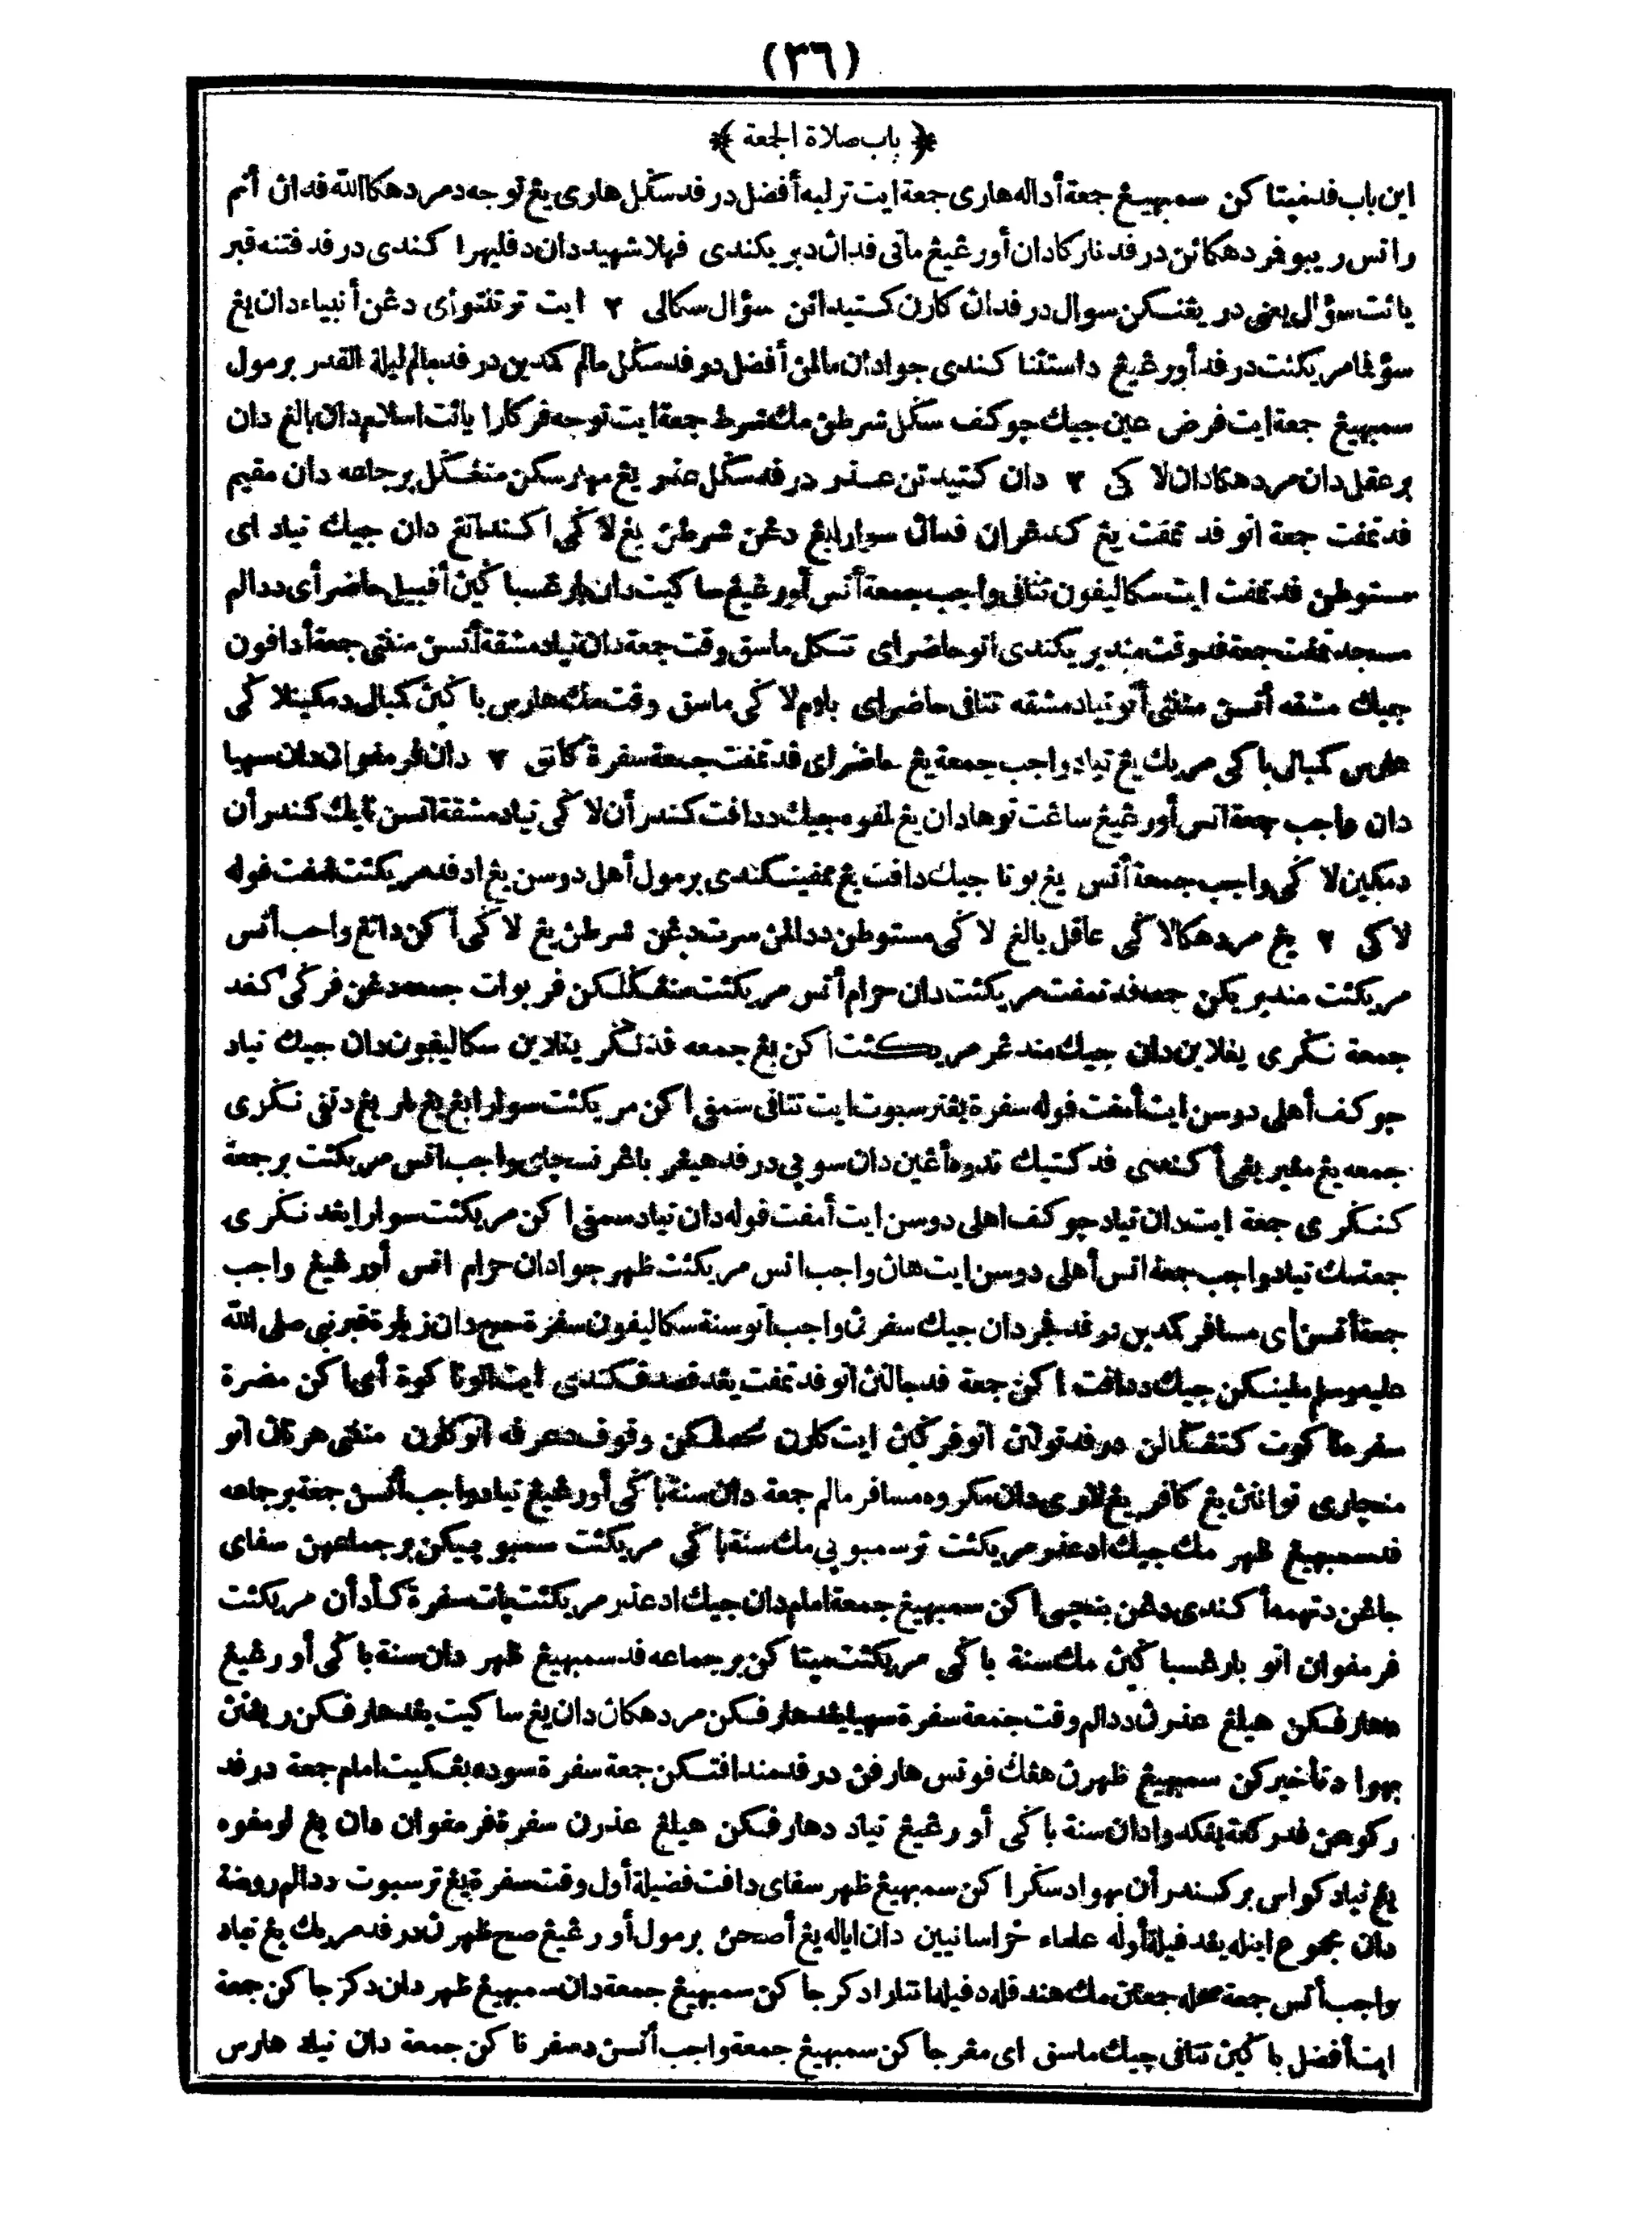 (٣٦)
﴿ باب صلاة الجمعة ﴾
اين باب فد مپتاكن سمبهيڠ جمعة أداله هاري جمعة ايت ترلبه أفضل درفد سكل هاري يڠ توجه دمردهكا الله فدان أنم
راتس ريبو فردهكائن درفد نارکا دان أورڠيڠ ماتي فدان دبريكندى فهلا شهيد دان دفليهرا كندى درفد فتنه قبر
يائت سؤال يعني دريڠنكن سوال درفدان كارن كتيدائن سؤال سكالى ٢ ايت ترتنتو اى دڠن أنبياء دان يڠ
مريكئت درفد أورڠيڠ داستثنا كندى جوا دان مالمن أفضل در فد سكل مالم كمدين درفد مالم ليلة القدر برمول
سمبهيڠ جمعة ايت فرض عين جيك جوكف سكل شرطن مك شرط جمعة ايت توجه فركارا يائت اسلام دان بالغ دان
برعقل دان مردهكا دان لاكى ٢ دان كتيدئن عذر درفد سكل عذر يڠ مهارسكن منڠكل برجماعه دان مقيم
فد تمفت جمعة اتو فد تمفت يڠ كدڠران فدان سوارا بڠ دڠن شرطن يڠ لاكى اكن داتڠ دان جيك تياد اى
مستوطن فد تمفت ايت سكاليفون تتافى واجب جمعة أتس أورڠيڠ ساكيت دان بارڠسباكين أفبيل حاضر أى ددالم
مسجد تمفت جمعة فد وقت منديريكندى اتو حاضر اى تتكل ماسق وقت جمعة دان تياد مشقة أتسن منڠتى جمعة أدافون
جيك مشقه أتسن منڠتى أتو تياد مشقه تتافى حاضر اى بلوم لاكى ماسق وقت مك هارس باكين كمبالى دمكينلاكى
هارس كمبالى باكى مريك يڠ تياد واجب جمعة يڠ حاضر اى فد تمفت جمعة سفرة كانق ٢ دان فرمفوان دان سهيا
دان واجب جمعة اتس أورڠيڠ ساڠت توها دان يڠ لمفوه جيك ددافت كندرأن لاكى تياد مشقة اتسن نايك كندرأن
دمكين لاكى واجب جمعة أتس يڠ بوتا جيك دافت يڠ ممفينكندى برمول أهل دوسن يڠ اد فد مريكئت امفت فوله
لاكى ٢ يڠ مردهكا لاكى عاقل بالغ لاكى مستوطن ددالمن سرت دڠن شرطن يڠ لاكى أكن داتڠ واجب أتس
مريكئت منديريكن جمعه فد تمفت مريكئت دان حرام أتس مريكئت منڠكلكن فربوات جمعه دڠن فركى كفد
جمعة نكرى يڠلاين دان جيك مندڠر مريكئت اكن بڠ جمعه فد نكر يڠلاين سكاليفون دان جيك تياد
جوكف أهلى دوسن ايت أمفت فوله سفرة يڠترسبوت ايت تتافى سمفى اكن مريكئت سوارا بڠ يڠ لمر يڠ دتفى نكرى
جمعه يڠ مڠيريڠى أكندى فد كتيك تدوه أڠين دان سوڽى درفد هيڠر باڠر نسچاى واجب اتس مريكئت برجمعة
كنكرى جمعة ايت دان تياد جوكف اهلى دوسن ايت أمفت فوله دان تياد سمفى اكن مريكئت سوارا يڠد نكرى
جمعة مك تياد واجب جمعة اتس أهلى دوسن ايت هاڽ واجب اتس مريكئت ظهر جوا دان حرام اتس أورڠيڠ واجب
جمعة أتسن اى مسافر كمدين درفد فجر دان جيك سفرڽ واجب اتو سنة سكاليفون سفرة حج دان زيارة قبر نبي صلى الله
عليه وسلم ملينكن جيك ددافت اكن جمعة فد جالنن اتو فد تمفت يڠد قصد فكندى ايت اتو تاكوة أى اكن مضرة
سفرمتاكوت كتڠكالن درفد تولنن اتو فركين ايت كارن محصيلكن وقوف دعرفه اتو كارن منڠتى هرتاڽ اتو
منچارى تواننن يڠ كافر يڠ لارى دان مكروه مسافر مالم جمعة دان سنة باكى أورڠيڠ تياد واجب أتسن جمعة برجماعه
فد سمبهيڠ ظهر مك جيك اد عذر مريكئت ترسمبوڽى مك سنة باكى مريكئت سمبوڽيكن برجماعهن سفاى
جاڠن دتهمه أكندى دڠن بنچى اكن سمبهيڠ جمعة امام دان جيك اد عذر مريكئت ڽات سفرة كأدأن مريكئت
فرمفوان اتو بارڠسباكين مك سنة باكى مريكئت مپتاكن برجماعه فد سمبهيڠ ظهر دان سنة باكى أورڠيڠ
دهارفكن هيلڠ عذرن ددالم وقت جمعة سفرة سهيا يڠد هارفكن مردهكان دان يڠ ساكيت يڠد هارفكن ريڠنن
بهوا دتأخيركن سمبهيڠ ظهرن هڠك فوتس هارفن درفد مندافتكن جمعة سفرة سوده بڠكيت امام جمعة درفد
ركوعن فد ركعة يڠكدوا دان سنة باكى أورڠيڠ تياد دهارفكن هيلڠ عذرن سفرة فرمفوان دان يڠ لومفوه
يڠ تياد كواس بركندرأن بهوا دسكراكن سمبهيڠ ظهر سفاى دافت فضيلة أول وقت سفرة يڠ ترسبوت ددالم روضة
دان مجموع اينله يڠد فيله أوله علماء خراسانيين دان اياله يڠ أصحن برمول أورڠيڠ صح ظهرن درفد مريك يڠ تياد
واجب أتس جمعة صحله جمعتن مك هندقله دفيله انتارا دكرجاكن سمبهيڠ جمعة دان سمبهيڠ ظهر دان دكرجاكن جمعة
ايت أفضل باكين تتافى جيك ماسق اى مڠرجاكن سمبهيڠ جمعة واجب أتسن دسمفرناكن جمعة دان تياد هارس